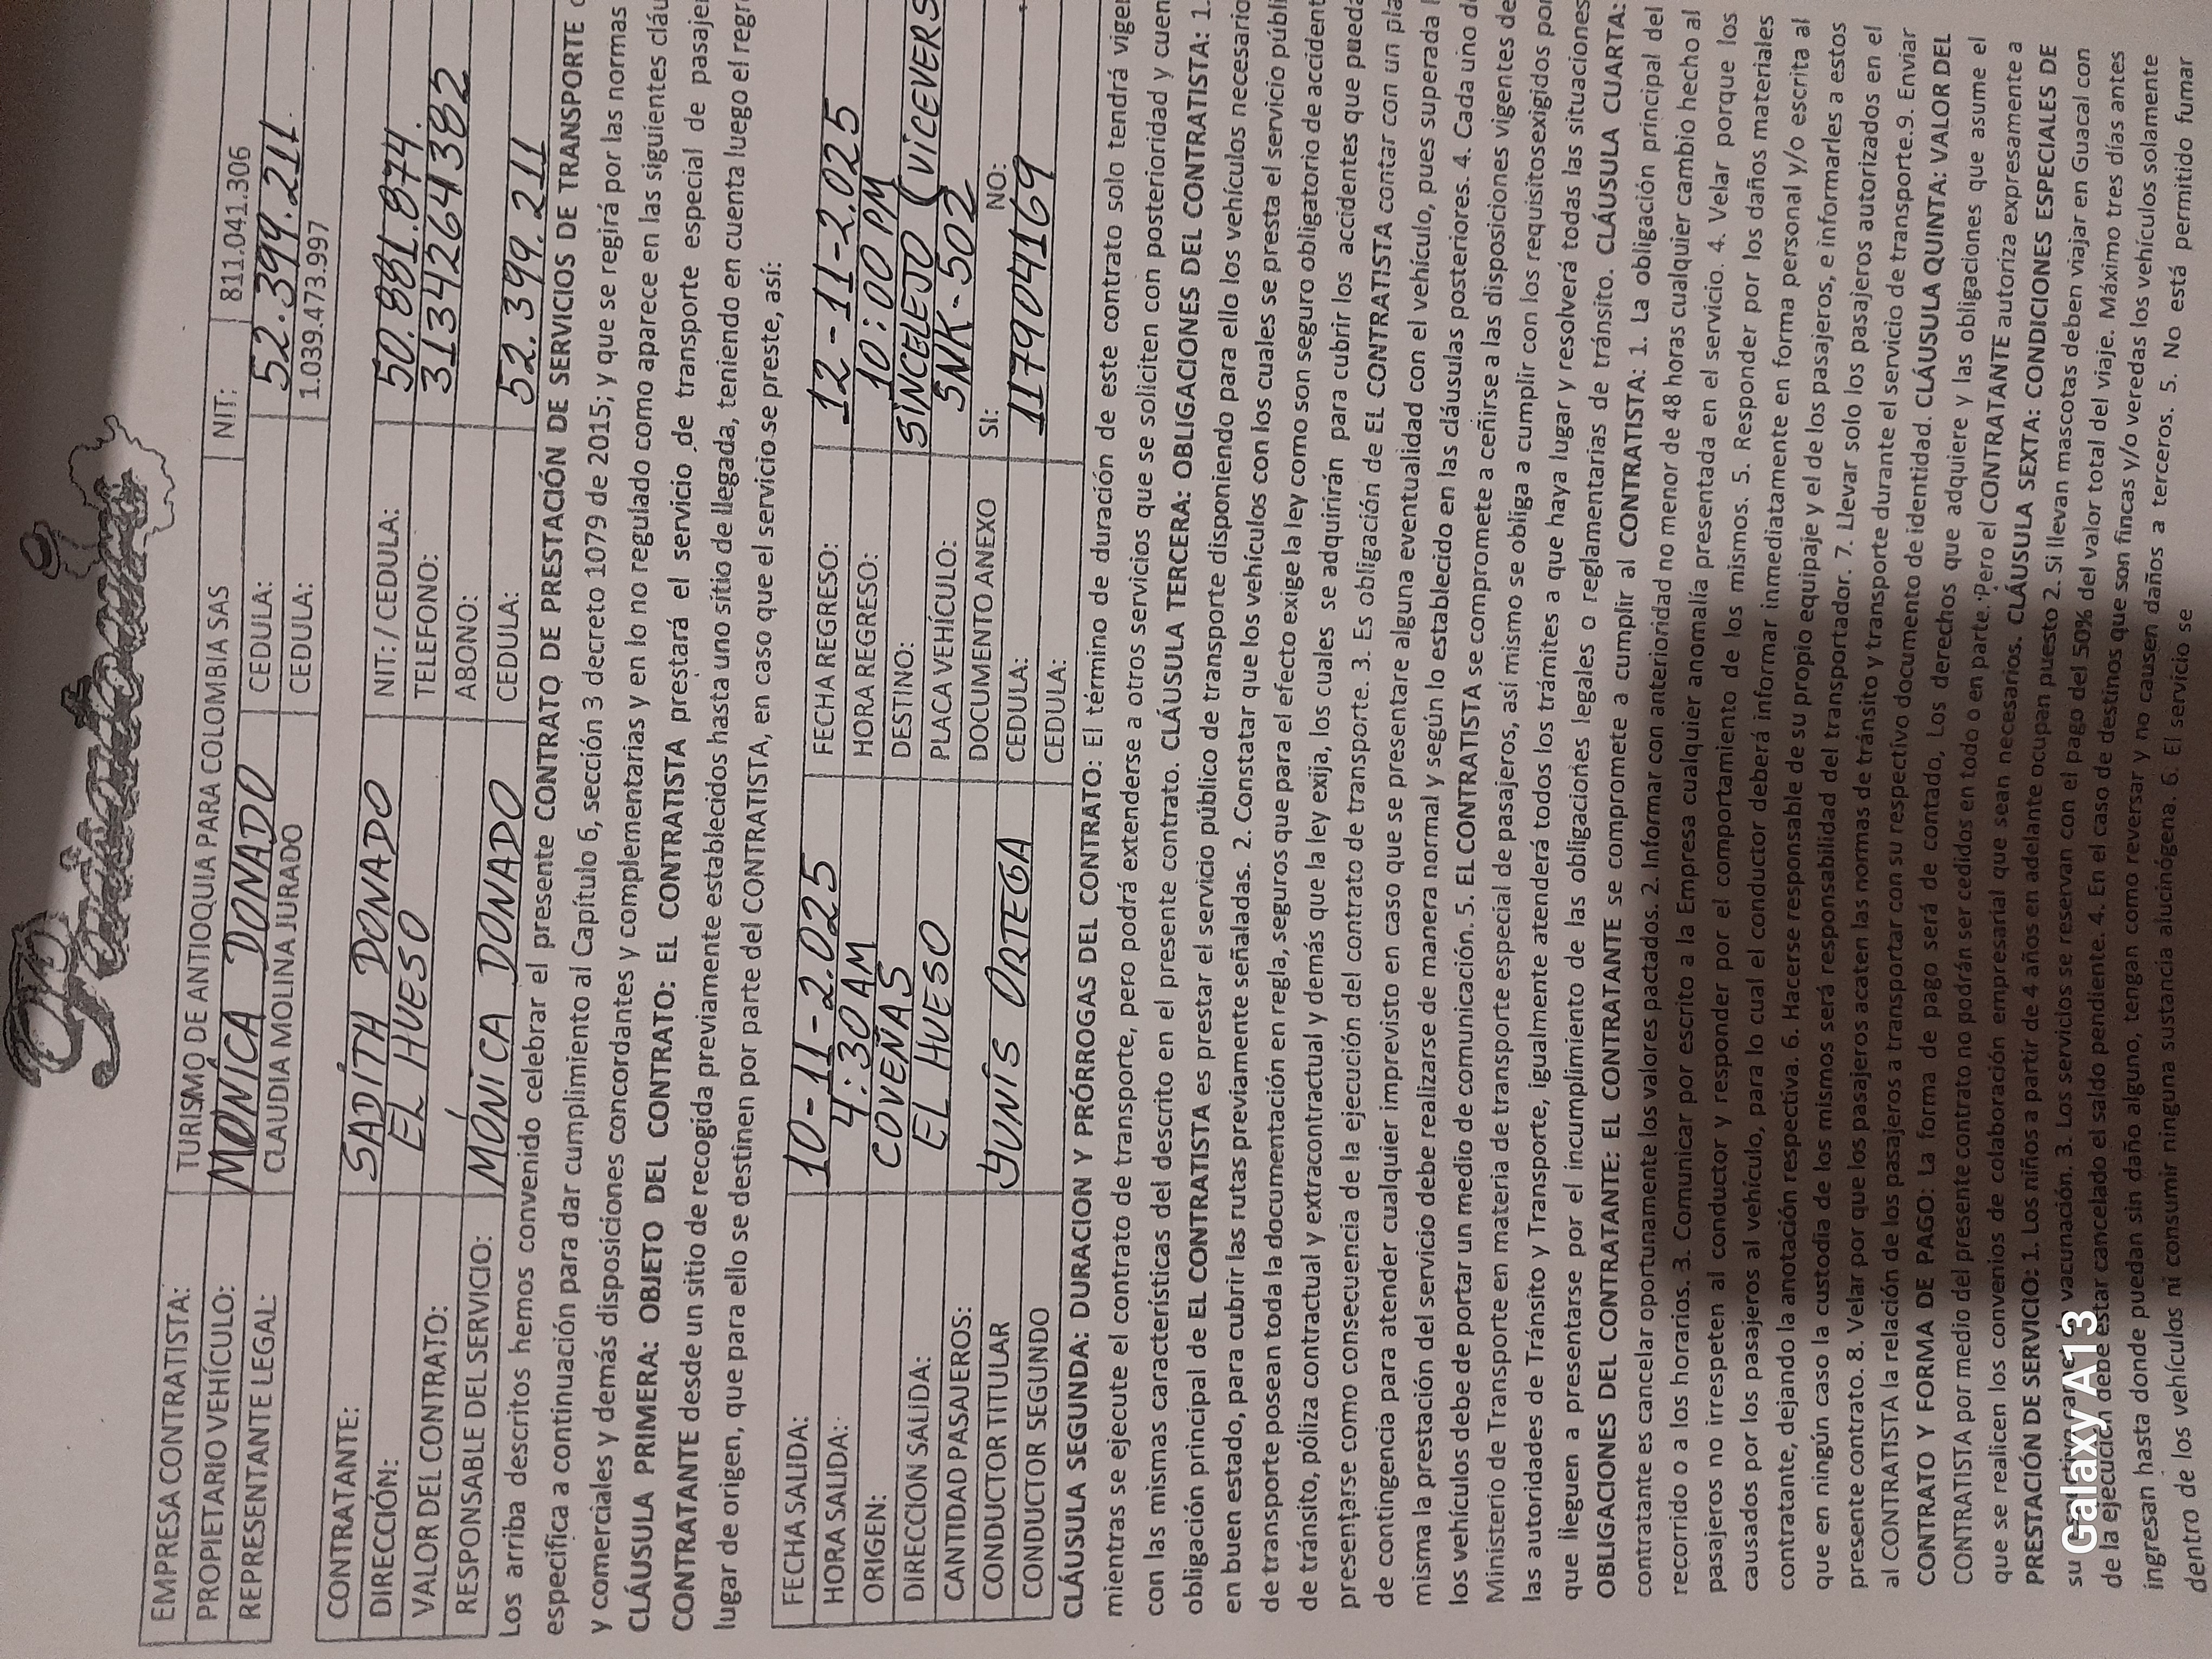 EMPRESA CONTRATISTA: TURISMO DE ANTIOQUIA PARA COLOMBIA SAS NIT: 811.041.306
PROPIETARIO VEHÍCULO: MONÍCA DONADO CEDULA: 52.399.211
REPRESENTANTE LEGAL: CLAUDIA MOLINA JURADO CEDULA: 1.039.473.997
CONTRATANTE: SADÍTH DONADO NIT: / CEDULA: 50.881.874.
DIRECCIÓN: EL HUESO TELEFONO: 3134264382
VALOR DEL CONTRATO: ABONO:
RESPONSABLE DEL SERVICIO: MÓNICA DONADO CEDULA: 52.399.211
Los arriba descritos hemos convenido celebrar el presente CONTRATO DE PRESTACIÓN DE SERVICIOS DE TRANSPORTE
especifica a continuación para dar cumplimiento al Capítulo 6, sección 3 decreto 1079 de 2015; y que se regirá por las normas
y comerciales y demás disposiciones concordantes y complementarias y en lo no regulado como aparece en las siguientes cláu
CLÁUSULA PRIMERA: OBJETO DEL CONTRATO: EL CONTRATISTA prestará el servicio de transporte especial de pasajer
CONTRATANTE desde un sitio de recogida previamente establecidos hasta uno sitio de llegada, teniendo en cuenta luego el regre
lugar de origen, que para ello se destinen por parte del CONTRATISTA, en caso que el servicio se preste, así:
FECHA SALIDA: 10-11-2.025 FECHA REGRESO: 12-11-2.025
HORA SALIDA: 4:30AM HORA REGRESO: 10:00 PM
ORIGEN: COVEÑAS DESTINO: SINCELEJO (VICEVERS
DIRECCION SALIDA: EL HUESO PLACA VEHÍCULO: SNK-502
CANTIDAD PASAJEROS: DOCUMENTO ANEXO SI: NO:
CONDUCTOR TITULAR YUNÍS ORTEGA CEDULA: 117904169
CONDUCTOR SEGUNDO CEDULA:
CLÁUSULA SEGUNDA: DURACION Y PRÓRROGAS DEL CONTRATO: El término de duración de este contrato solo tendrá vigen
mientras se ejecute el contrato de transporte, pero podrá extenderse a otros servicios que se soliciten con posterioridad y cuen
con las mismas características del descrito en el presente contrato. CLÁUSULA TERCERA: OBLIGACIONES DEL CONTRATISTA: 1.
obligación principal de EL CONTRATISTA es prestar el servicio público de transporte disponiendo para ello los vehículos necesario
en buen estado, para cubrir las rutas previamente señaladas. 2. Constatar que los vehículos con los cuales se presta el servicio públi
de transporte posean toda la documentación en regla, seguros que para el efecto exige la ley como son seguro obligatorio de accident
de tránsito, póliza contractual y extracontractual y demás que la ley exija, los cuales se adquirirán para cubrir los accidentes que pueda
presentarse como consecuencia de la ejecución del contrato de transporte. 3. Es obligación de EL CONTRATISTA contar con un pla
de contingencia para atender cualquier imprevisto en caso que se presentare alguna eventualidad con el vehículo, pues superada
misma la prestación del servicio debe realizarse de manera normal y según lo establecido en las cláusulas posteriores. 4. Cada uno de
los vehículos debe de portar un medio de comunicación. 5. EL CONTRATISTA se compromete a ceñirse a las disposiciones vigentes de
Ministerio de Transporte en materia de transporte especial de pasajeros, así mismo se obliga a cumplir con los requisitosexigidos por
las autoridades de Tránsito y Transporte, igualmente atenderá todos los trámites a que haya lugar y resolverá todas las situaciones
que lleguen a presentarse por el incumplimiento de las obligaciones legales o reglamentarias de tránsito. CLÁUSULA CUARTA:
OBLIGACIONES DEL CONTRATANTE: EL CONTRATANTE se compromete a cumplir al CONTRATISTA: 1. La obligación principal del
contratante es cancelar oportunamente los valores pactados. 2. Informar con anterioridad no menor de 48 horas cualquier cambio hecho al
recorrido o a los horarios. 3. Comunicar por escrito a la Empresa cualquier anomalía presentada en el servicio. 4. Velar porque los
pasajeros no irrespeten al conductor y responder por el comportamiento de los mismos. 5. Responder por los daños materiales
causados por los pasajeros al vehículo, para lo cual el conductor deberá informar inmediatamente en forma personal y/o escrita al
contratante, dejando la anotación respectiva. 6. Hacerse responsable de su propio equipaje y el de los pasajeros, e informarles a estos
que en ningún caso la custodia de los mismos será responsabilidad del transportador. 7. Llevar solo los pasajeros autorizados en el
presente contrato. 8. Velar por que los pasajeros acaten las normas de tránsito y transporte durante el servicio de transporte.9. Enviar
al CONTRATISTA la relación de los pasajeros a transportar con su respectivo documento de identidad. CLÁUSULA QUINTA: VALOR DEL
CONTRATO Y FORMA DE PAGO: La forma de pago será de contado, Los derechos que adquiere y las obligaciones que asume el
CONTRATISTA por medio del presente contrato no podrán ser cedidos en todo o en parte. Pero el CONTRATANTE autoriza expresamente a
que se realicen los convenios de colaboración empresarial que sean necesarios. CLÁUSULA SEXTA: CONDICIONES ESPECIALES DE
PRESTACIÓN DE SERVICIO: 1. Los niños a partir de 4 años en adelante ocupan puesto 2. Si llevan mascotas deben viajar en Guacal con
su vacunación. 3. Los servicios se reservan con el pago del 50% del valor total del viaje. Máximo tres días antes
de la ejecución debe estar cancelado el saldo pendiente. 4. En el caso de destinos que son fincas y/o veredas los vehículos solamente
ingresan hasta donde puedan sin daño alguno, tengan como reversar y no causen daños a terceros. 5. No está permitido fumar
dentro de los vehículos ni consumir ninguna sustancia alucinógena. 6. El servicio se
Galaxy A13